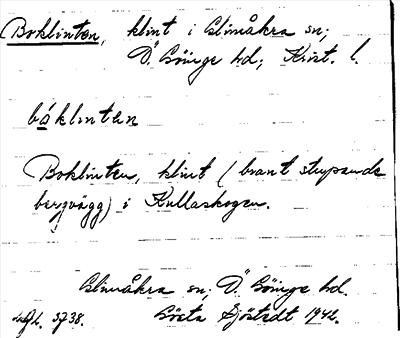 Boklinten, klint i Glimåkra sn;
Ö. Göinge hd; Krist. l.
båklintən
Boklinten, klint (brant stupande
bergvägg) i Kullaskogen.
Glimåkra sn, Ö. Göinge hd.
5738. Gösta Sjöstedt 1942.